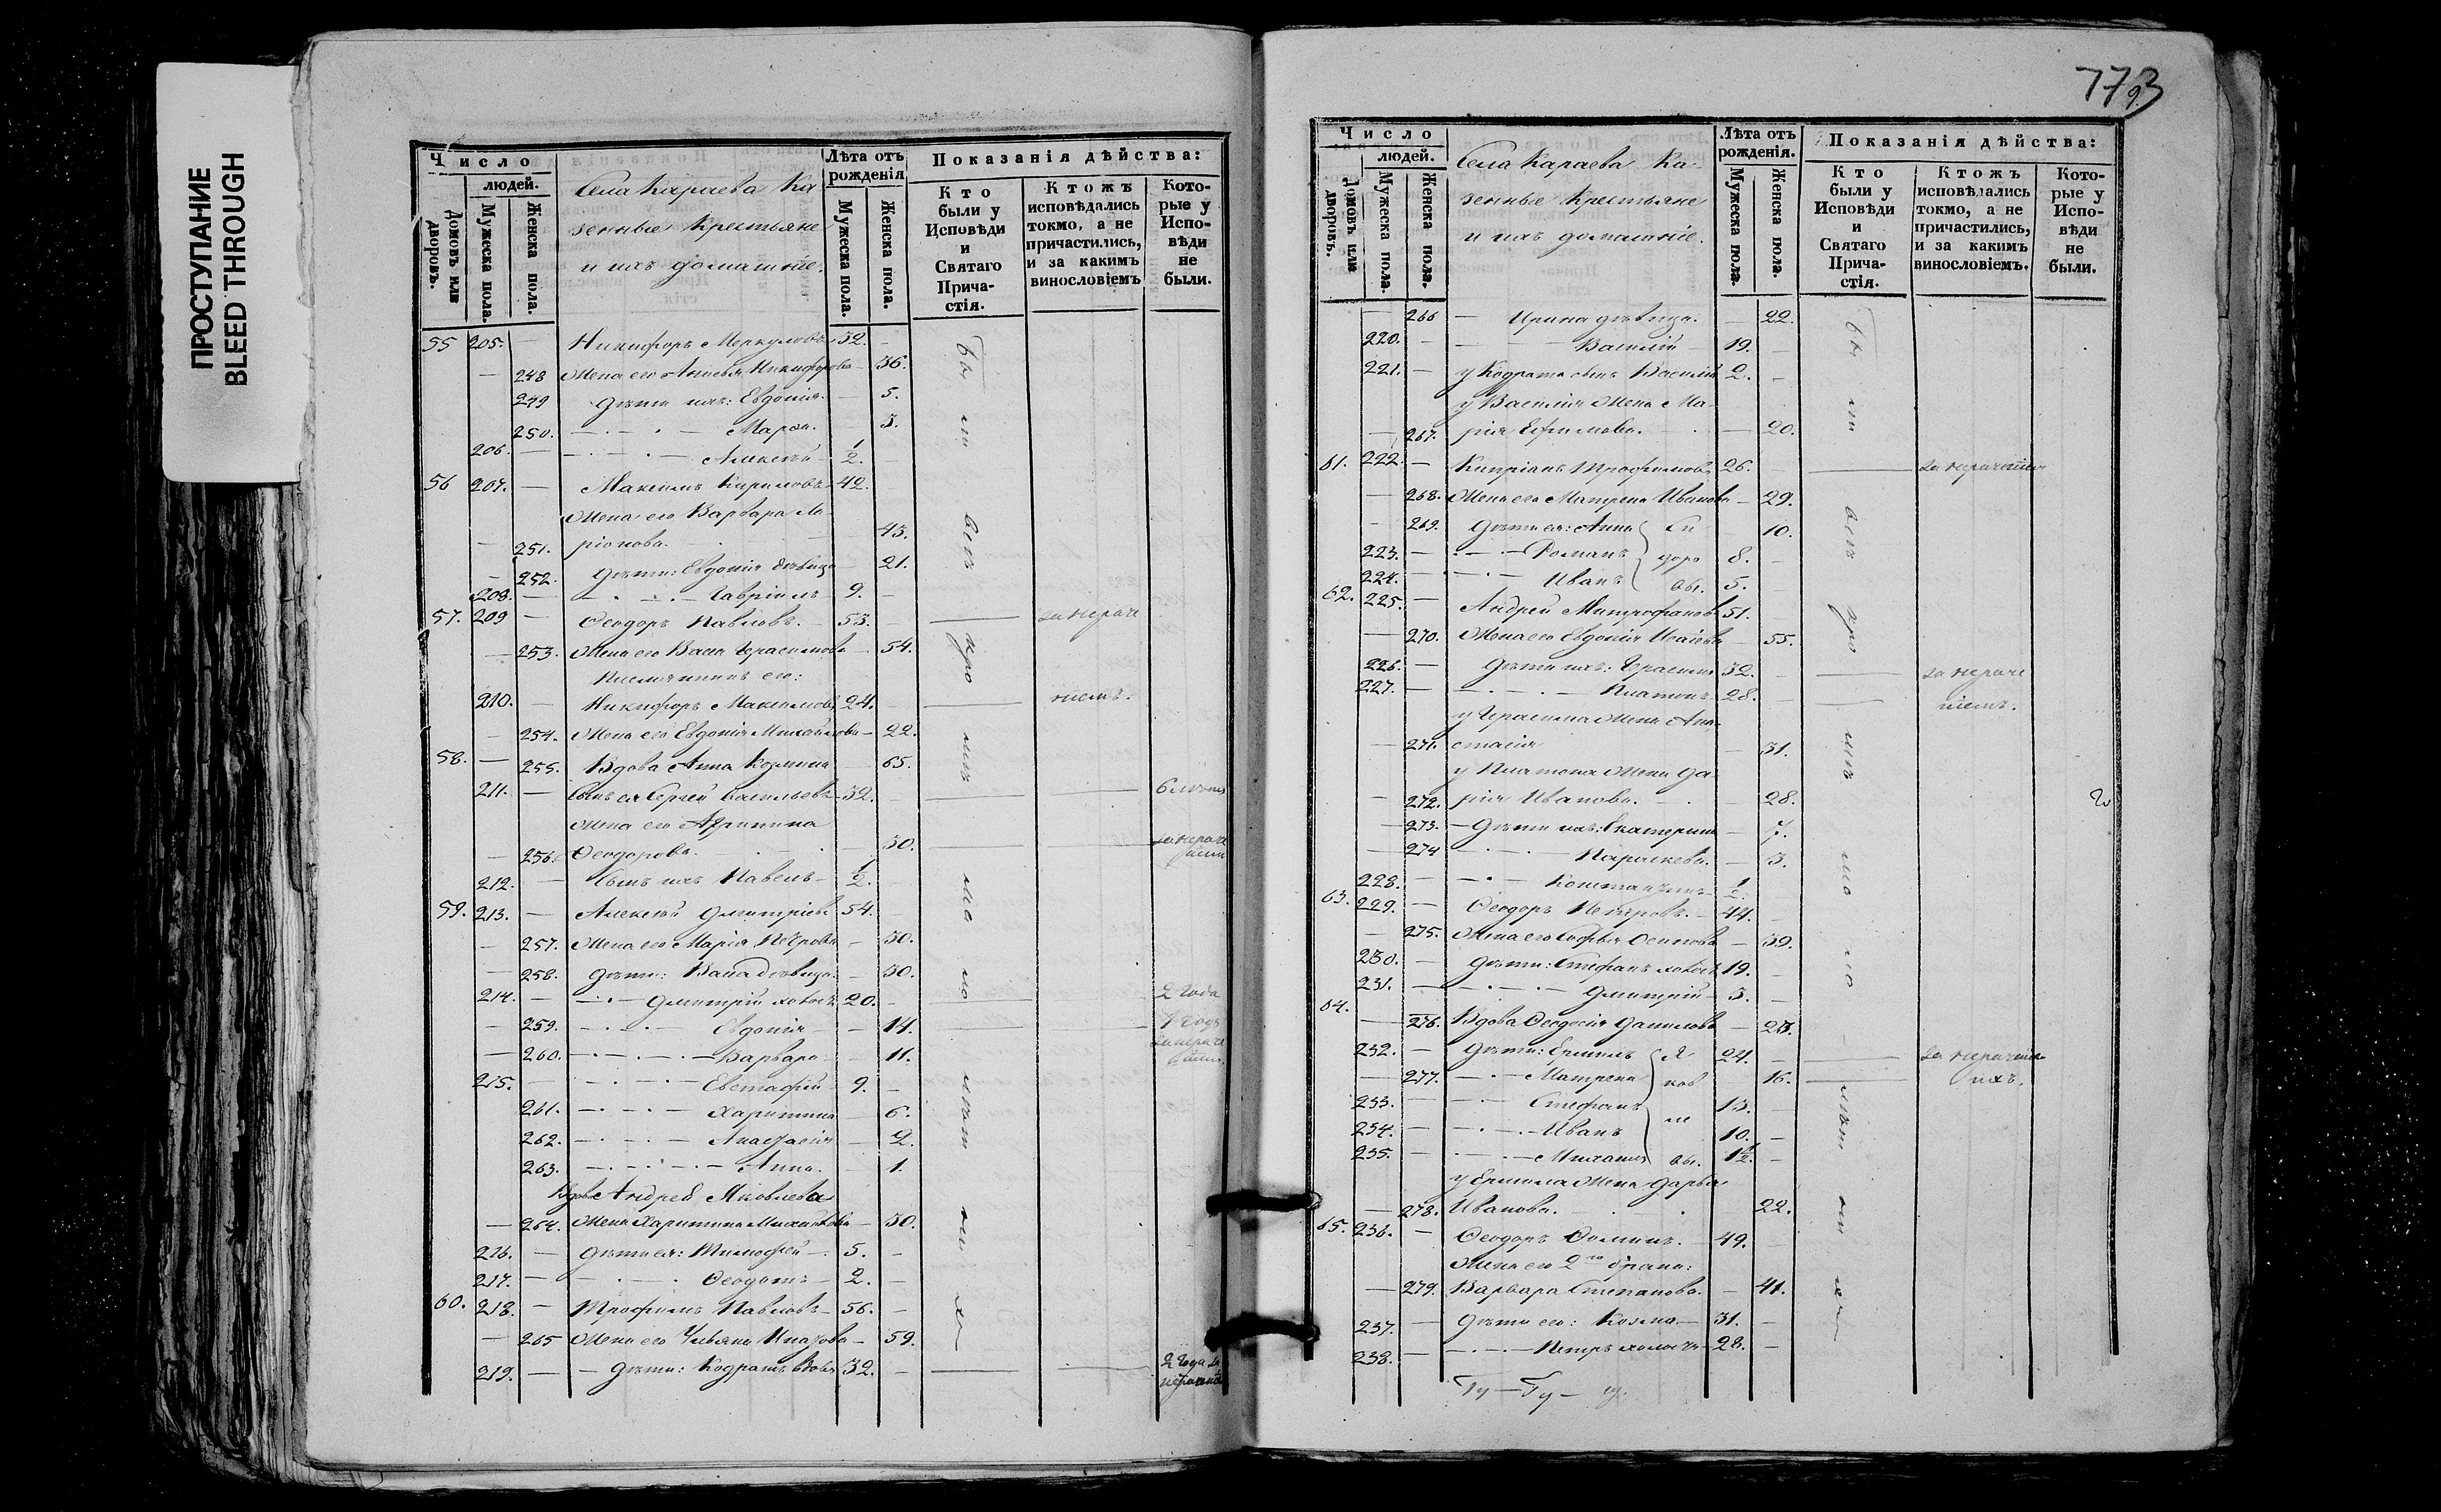 ПРОСТУПАНИЕ
BLEED THROUGH
Число
людей.
Домовъ или дворовъ.
Мужеска пола.
Женска пола.
Села Караева Ка
зенные Крестьяне
и ихъ домашніе.
Лѣта отъ рожденія
Мужеска пола.
Женска пола.
Показанія дѣйства:
Кто были у Исповѣди и Святаго Причастія.
Ктожъ исповѣдались токмо, а не причастились, и за какимъ винословіемъ
Которые у Исповѣди не были.
55 205. — Никифоръ Меркуловъ 32. —
— 248 Жена его Анисья Никифорова — 36.
249 Дѣти ихъ: Евдокія — 5.
250. Марѳа. 3.
206. — Алексѣй 1/2. —
56 207. — Максимъ Кириловъ 42.
Жена его Варвара Ла
— 251. ріонова. — 43.
— 252. Дѣти: Евдокія дѣвица 21.
208. — Гавріилъ 9. —
57. 209 — Ѳеодоръ Павловъ. 53. — за нераче
— 253. Жена его Васса Герасимова — 54.
Племянникъ его:
210. — Никифоръ Максимовъ 24. — ніемъ.
— 254. Жена его Евдокія Михайлова — 22.
58. — 255. Вдова Анна Козмина 65.
211. — Сынъ ея Сергей Васильевъ 32. — 6 лѣтъ
Жена его Агрипина
— 256. Ѳеодорова. — 30. за нераче
ніем
212. — Сынъ ихъ Павелъ 1/2. —
59. 213. — Алексѣй Дмитріевъ 54. —
— 257. Жена его Марія Петрова — 50.
— 258. Дѣти: Васса дѣвица — 30.
214. — Дмитрій холостъ 20. — 2 года
— 259. Евдокія — 14. 1 годъ
за нераче
— 260. Варвара — 11. ніем.
215. — Евстафій 9. —
261. Харитина 6.
262. Анастасія — 2.
263. Анна. — 1.
Вдова Андрея Яковлева
— 264. Жена Харитина Михайлова — 30.
216. — Дѣти ея: Тимофей 5. —
217. — Ѳеодотъ 2. —
60. 218. — Трофимъ Павловъ 56. —
— 265 Жена его Ульяна Игнатова — 59.
219. — Дѣти: Кодратъ вдовъ 32. — 2 года за
нерачені
бы
ли
всѣ
кро
мѣ
ма
ло
лѣт
ни
хъ
773
9
Число
людей.
Домовъ или дворовъ.
Мужеска пола.
Женска пола.
Села Караева Ка-
зенные Крестьяне
и ихъ домашніе.
Лѣта отъ рожденія.
Мужеска пола.
Женска пола.
Показанія дѣйства:
Кто были у Исповѣди и Святаго Причастія.
Ктожъ исповѣдались токмо, а не причастились, и за какимъ винословіемъ.
Которые у Исповѣди не были.
— 266 — Ирина дѣвица. — 22.
220. — Василій 19. —
221. — у Кодрата сынъ Василій 2. —
у Василія Жена Ма
— 267. рія Ефимова. — 20.
61. 222. — Кипріанъ Трофимовъ 26. — за нераченіем
— 268. Жена его Матрена Иванова — 29.
— 269. Дѣти ея: Анна 10.
223. — Романъ 8. —
224. — Иванъ 5.
Си
доро
вы.
62. 225. — Андрей Митрофановъ 51.
— 270. Жена его Евдокія Исаіева — 55.
226. — Дѣти ихъ: Герасимъ 32. — за нераче
227. — Платонъ 28. — ніемъ.
у Герасима Жена Ана-
— 271. стасія — 31.
у Платона Жена Да-
— 272. рія Иванова. — 28.
— 273. Дѣти ихъ: Екатерина — 7.
— 274 Параскева. — 3.
228. — Константинъ 1/2.
63. 229. — Ѳеодоръ Петровъ. 44. —
— 275. Жена его Софья Осипова — 39.
230. — Дѣти: Стефанъ холостъ 19. —
231. — Дмитрій 3. —
64. — 276. Вдова Ѳеодосія Данилова — 23.
232. — Дѣти: Ермилъ 24. — за нерачені
— 277. Матрена 16. — ихъ.
233. — Стефанъ 13. —
234. — Иванъ 10. —
235. — Михаилъ 1 1/2. —
Я
ков
ле
вы.
у Ермила Жена Дарья
— 278. Иванова. 22.
65. 236. — Ѳеодоръ Ѳоминъ. 49. —
Жена его 2го брака:
— 279. Варвара Степанова. — 41.
237. — Дѣти его: Козма 31. —
238. — Петръ холостъ 28. —
бы
ли
всѣ
кро
мѣ
ма
ло
лѣт
ни
хъ